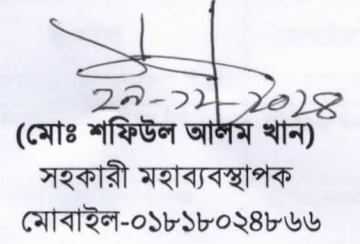 ২৯-১২-২০২৪
(মোঃ শফিউল আলম খান)
সহকারী মহাব্যবস্থাপক
মোবাইল-০১৮১৮০২৪৮৬৬